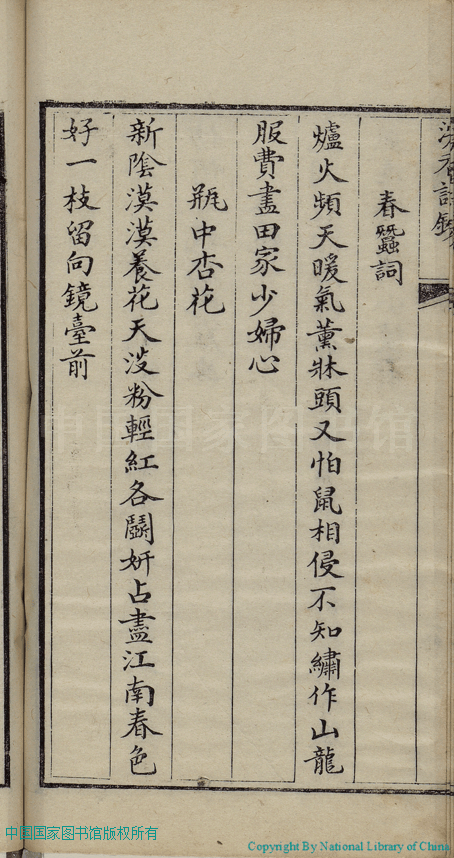 春蠶詞
爐火頻天暖氣薰牀頭又怕鼠相侵不知繡作山龍
服費盡田家少婦心
瓶中杏花
新陰漠漠養花天淺粉輕紅各鬭妍占盡江南春色
好一枝留向鏡臺前
中国国家图书馆
中国国家图书馆版权所有
Copyright By National Library of China